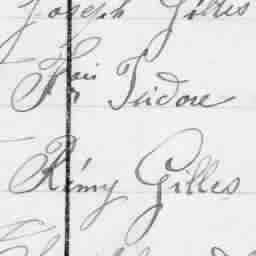 Joseph Gilles
Frs Isidore
Rémy Gilles